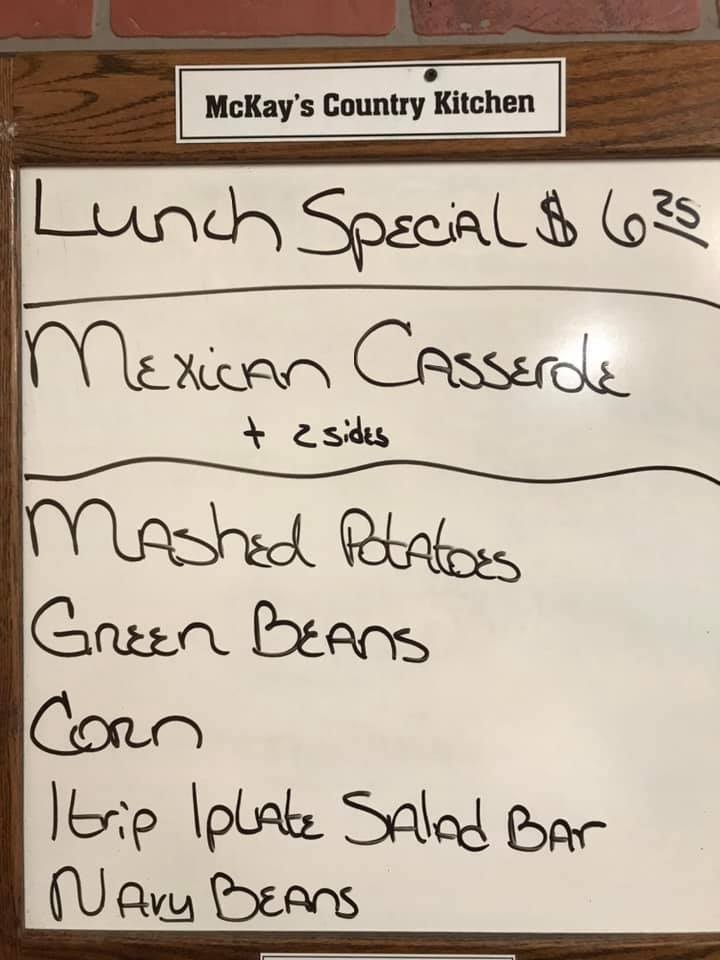 McKay's Country Kitchen
Lunch Special $ 6 25
Mexican Casserole
+ 2 sides
Mashed Potatoes
Green Beans
Corn
1 trip 1 plate Salad Bar
Navy Beans